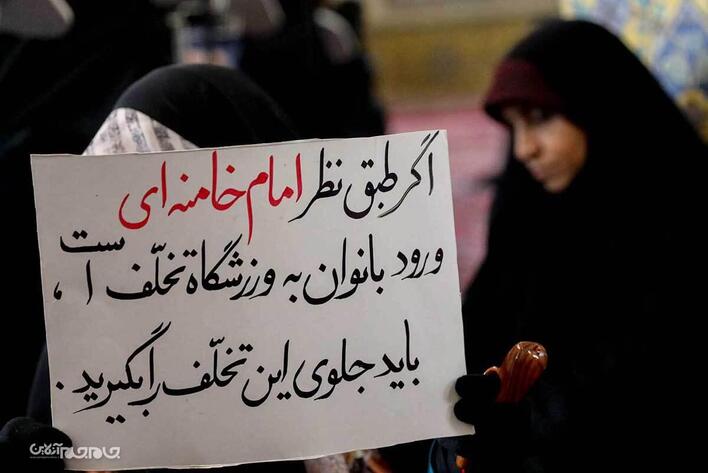 اگر طبق نظر امام خامنه ای
ورود بانوان به ورزشگاه تخلّف است،
باید جلوی این تخلّف را بگیرید.
جام جم آنلاین